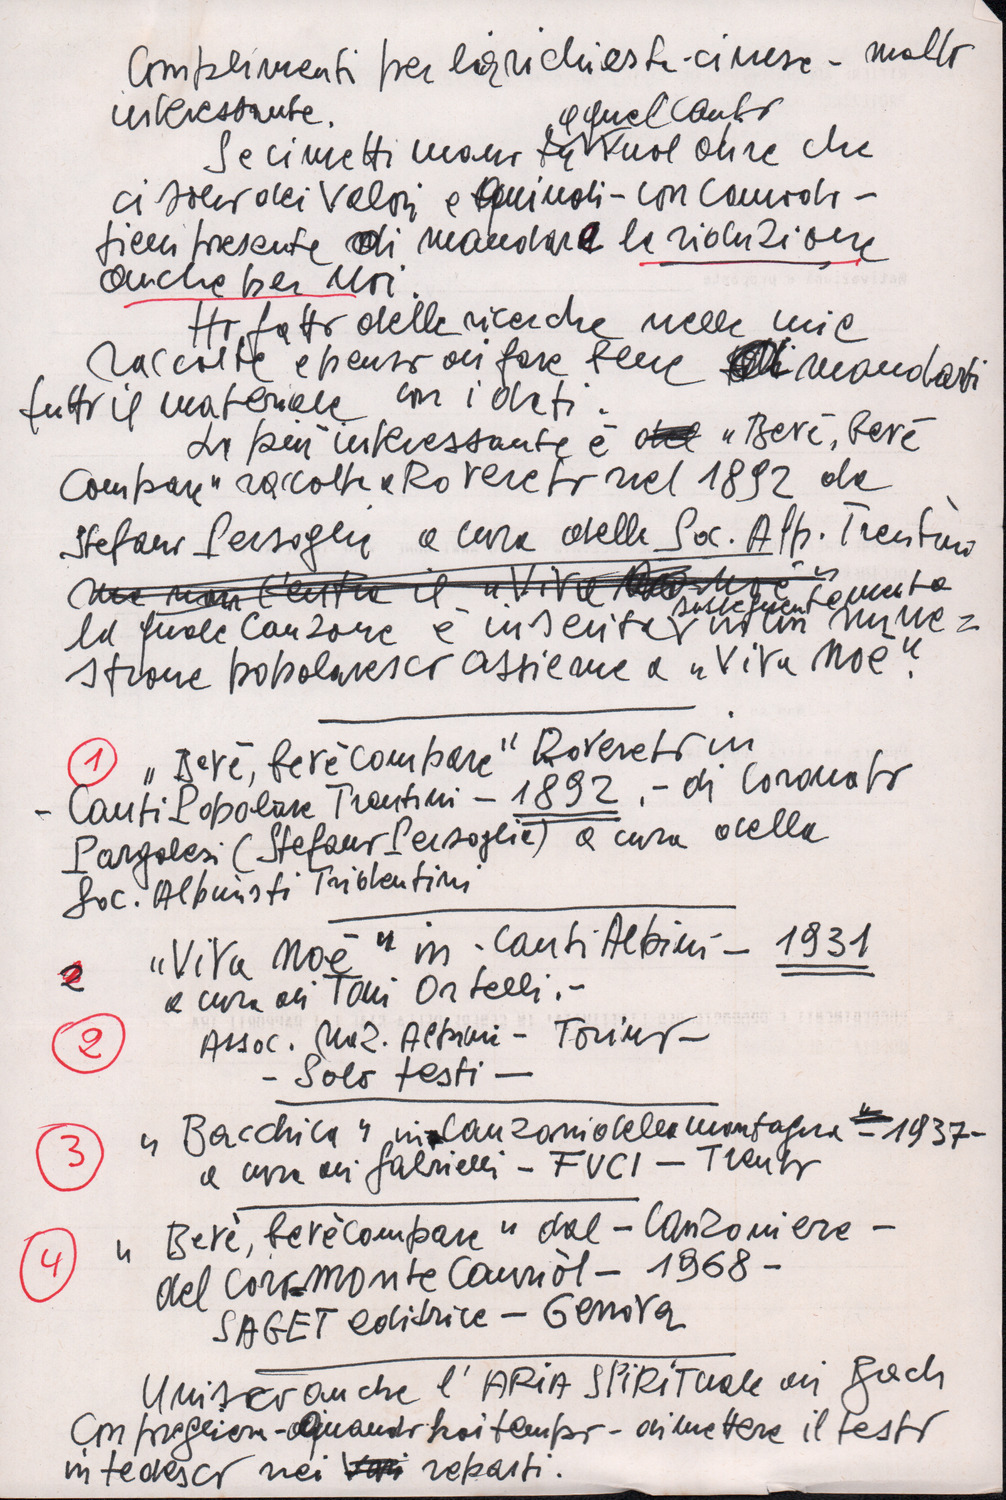 Complimenti per la richiesta-cinese - molto
interessante.
a quel canto
Se ci metti mano tu vuol dire che
ci sono dei valori e quindi - con comodo -
tieni presente di mandare la riduzione
anche per noi.
Ho fatto delle ricerche nelle mie
raccolte e penso di fare bene di mandarti
tutto il materiale con i dati.
La più interessante è "Bevè, bevè
compare" raccolta a Rovereto nel 1892 da
Stefano Persoglia a cura della Soc. Alp. Trentino
susseguentemente
la quale canzone è inserita in un mine=
strone popolaresco assieme a "Viva Noè".
1 "Bevè, bevè compare" Rovereto in
- Canti Popolare Trentini - 1892.- di Coronato
Pargolesi (Stefano Persoglia) a cura della
Soc. Alpinisti Tridentini
2 "Viva Noè" in - Canti Alpini - 1931
a cura di Toni Ortelli.-
2 Assoc. Naz. Alpini - Torino -
- Solo testi -
3 "Bacchica" in Canzoni della montagna - 1937 -
a cura di Gabrielli - FUCI - Trento
4 "Bevè, bevè compare" dal - Canzoniere -
del Coro Monte Cauriòl - 1968 -
SAGET editrice - Genova
Unisco anche l'ARIA SPIRITuale di Bach
con preghiera - quando hai tempo - di mettere il testo
in tedesco nei reparti.